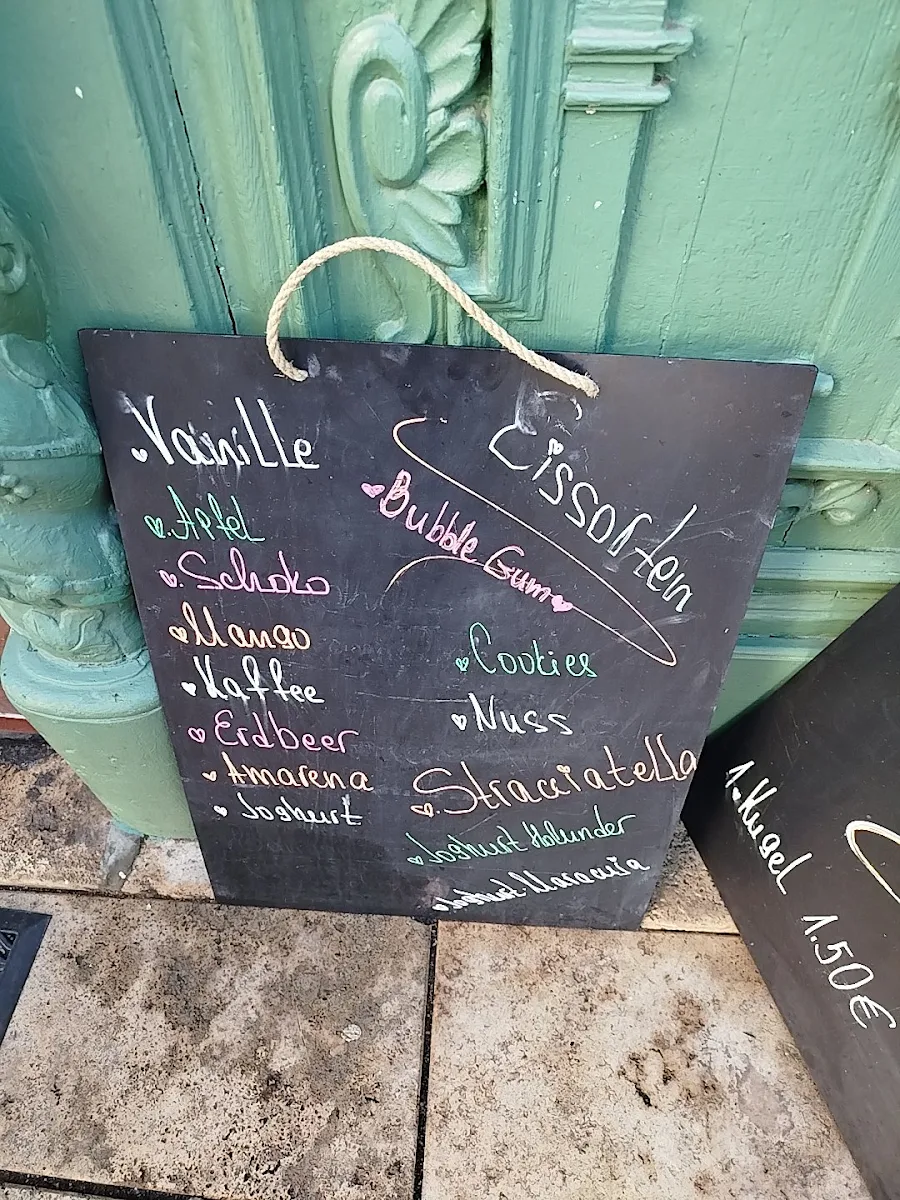 Eissorten
Vanille
Apfel
Schoko
Mango
Kaffee
Erdbeer
Amarena
Joghurt
Bubble Gum
Cookies
Nuss
Stracciatella
Joghurt Holunder
Joghurt-Maracuja
1 Kugel
1.50€